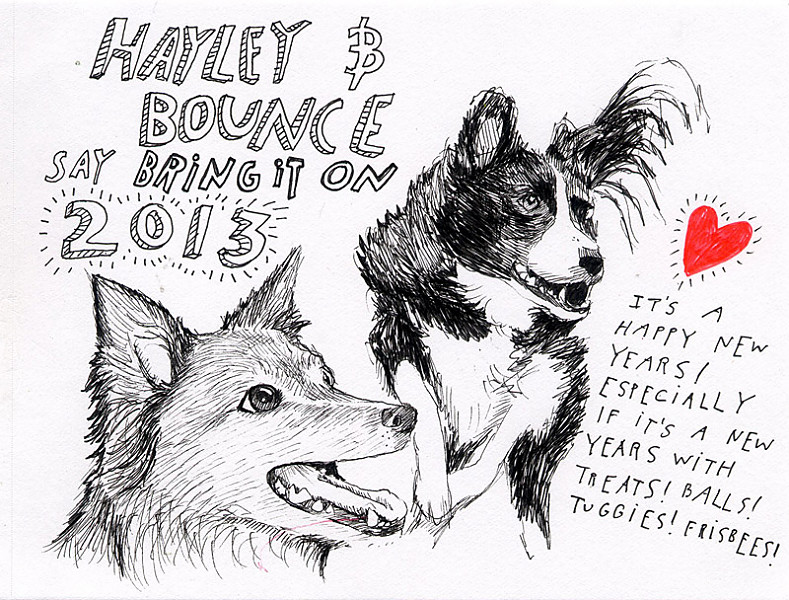 HAYLEY &
BOUNCE
SAY BRING IT ON
2013
IT'S A
HAPPY NEW
YEARS!
ESPECIALLY
IF IT'S A NEW
YEARS WITH
TREATS! BALLS!
TUGGIES! FRISBEES!